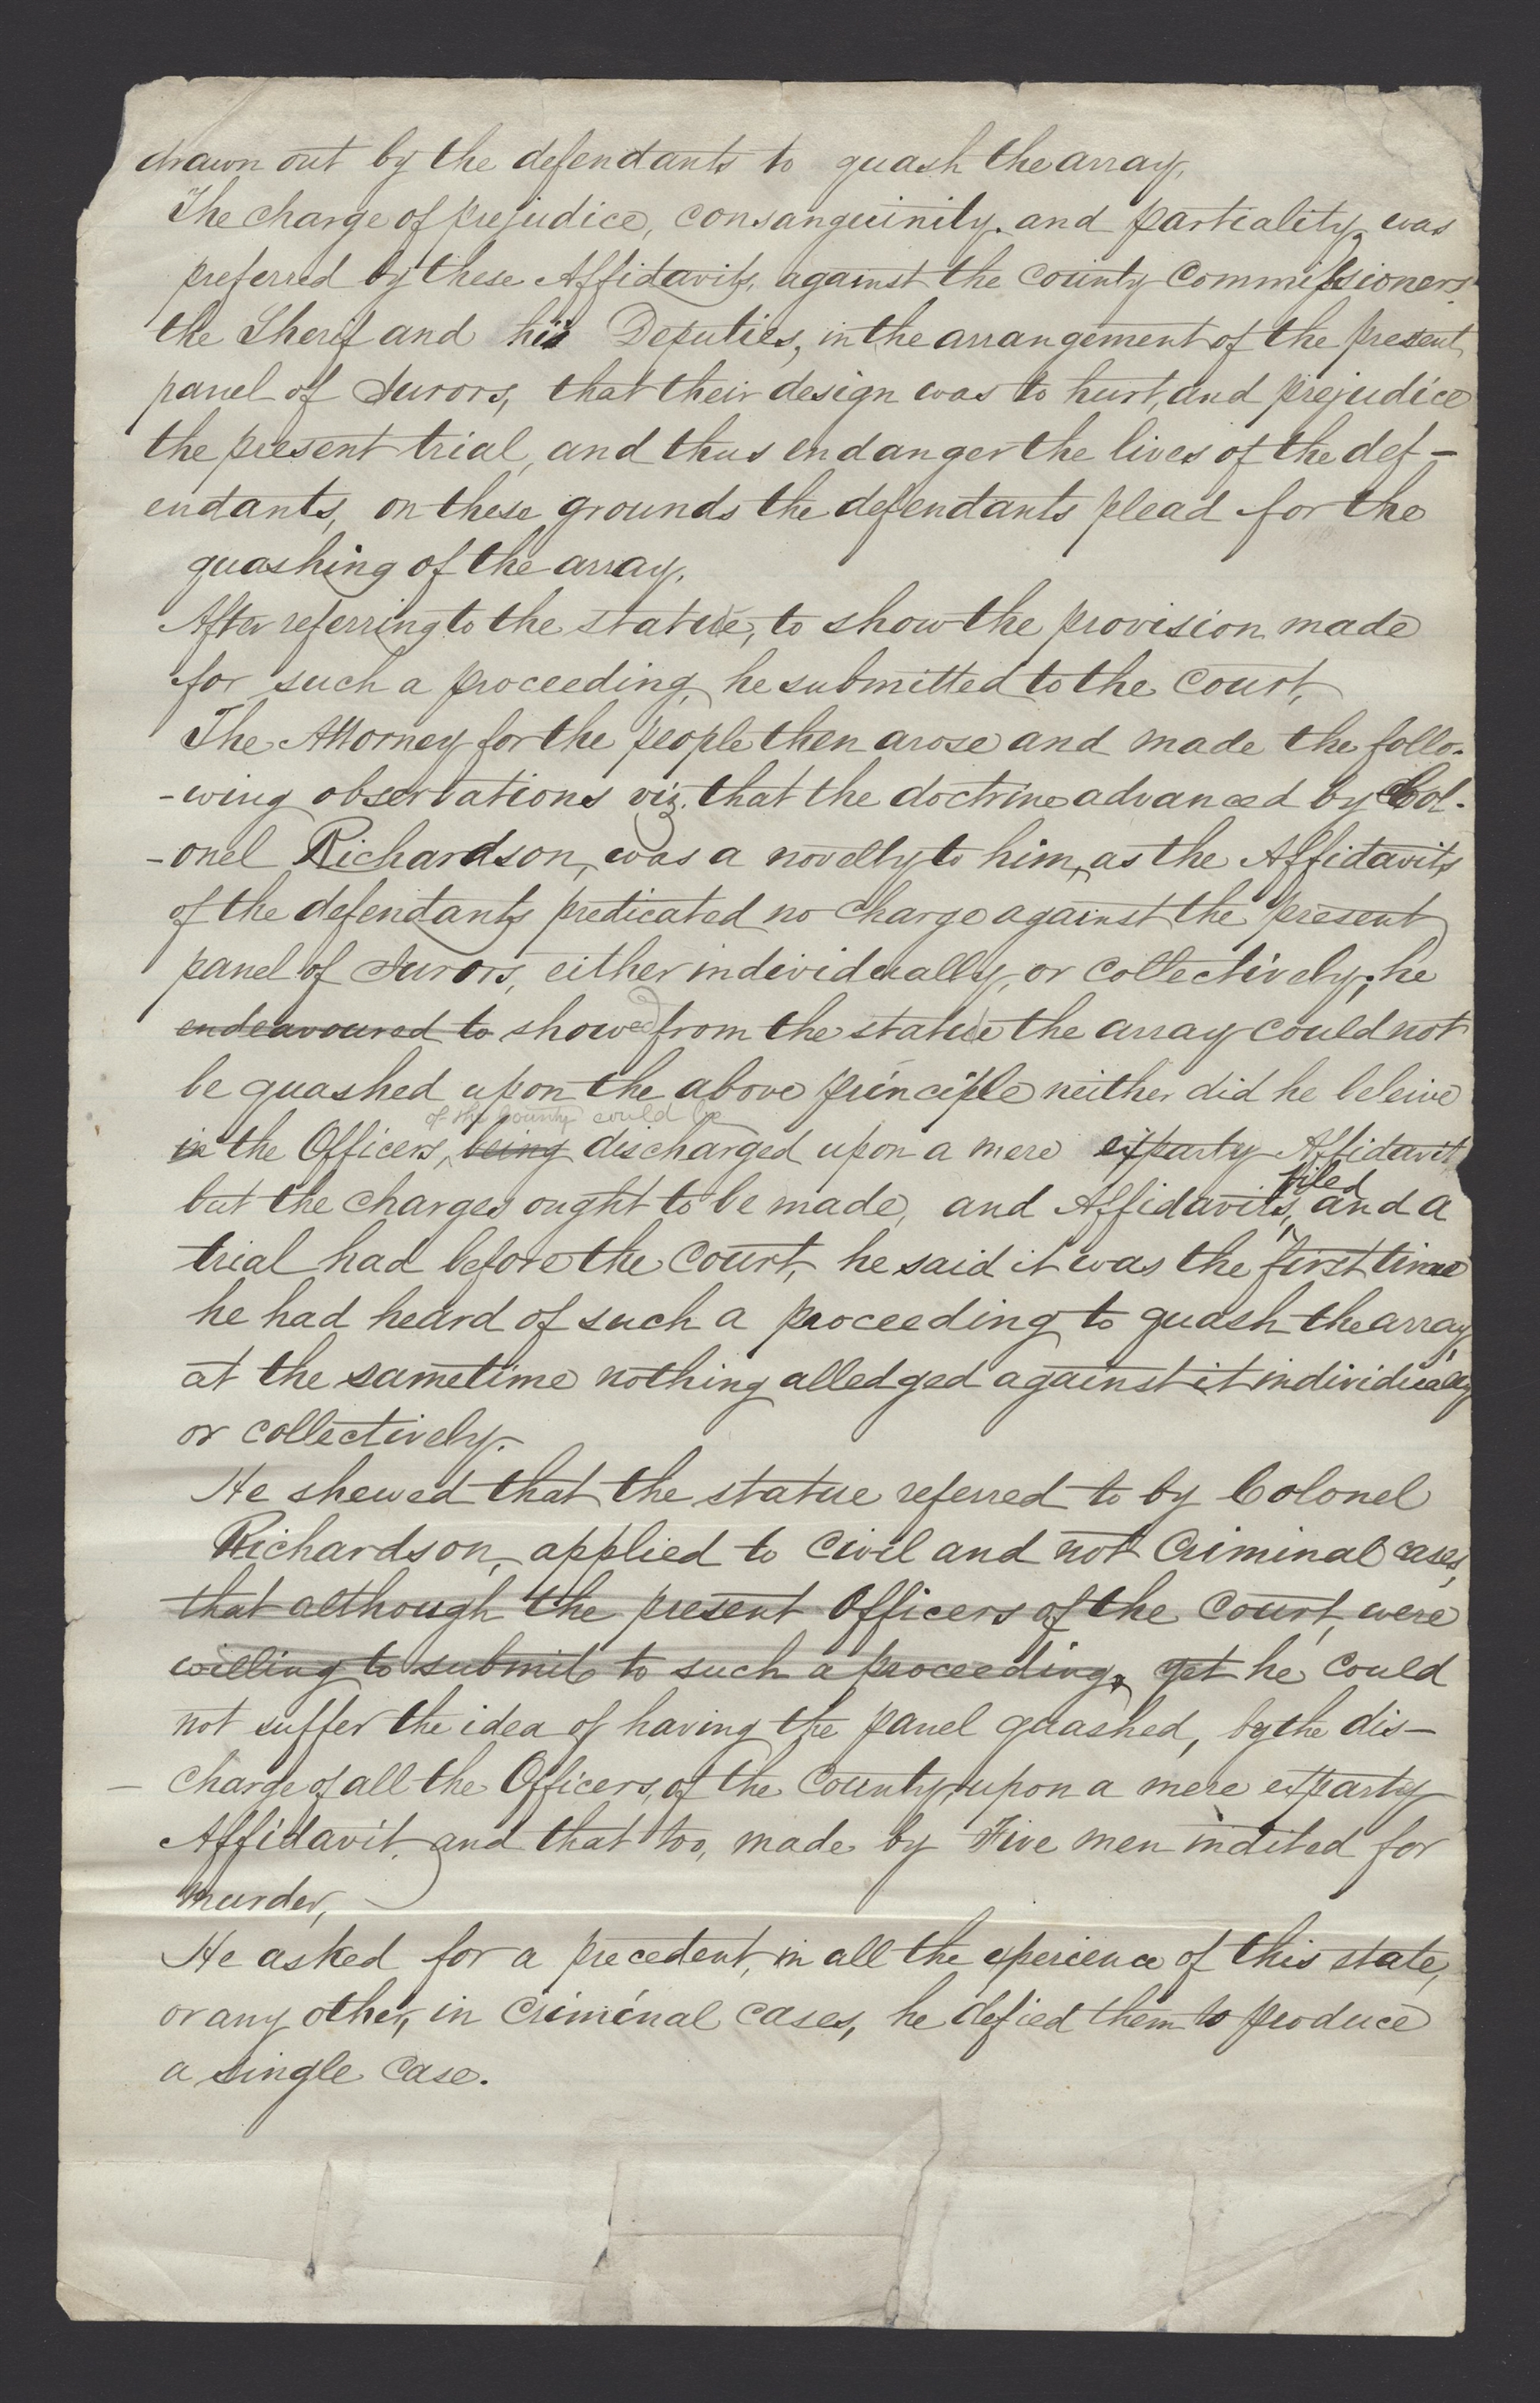 drawn out by the defendants to quash the array,
The charge of prejudice, consanguinity. and partiality, was
preferred by these Affidavits, against the County Commissioners
the Sherif and his Deputies, in the arrangement of the present
panel of Jurors, that their design was to hurt, and prejudice
the present trial, and thus endanger the lives of the def-
endants, on these grounds the defendants plead for the
quashing of the array.
After referring to the statute, to show the provision made
for such a proceeding, he submitted to the Court,
The Attorney for the people then arose and made the follo-
-wing observations viz. that the doctrine advanced by Col-
-onel Richardson, was a novelty to him, as the Affidavits
of the defendants predicated no charge against the present
panel of Jurors, either individually, or collectively; he
endeavoured to showed from the statute the array could not
be quashed upon the above principle neither did he beleive
of the County could be
in the Officers, being discharged upon a mere exparty Affidavit
filed
but the charges ought to be made, and Affidavits, and a
trial had before the Court, he said it was the first time
he had heard of such a proceeding to quash the array,
at the sametime nothing alledged against it individually
or collectively.
He shewed that the statue referred to by Colonel
Richardson, applied to Civil and not Criminal cases,
that although the present Officers of the Court, were
willing to submit to such a proceeding, yet he could
not suffer the idea of having the panel quashed, by the dis-
- charge of all the Officers, of the County, upon a mere exparty
Affidavit, and that too, made by Five men indited for
murder,
He asked for a precedent, in all the experience of this state,
or any other, in Criminal cases, he defied them to produce
a single case.